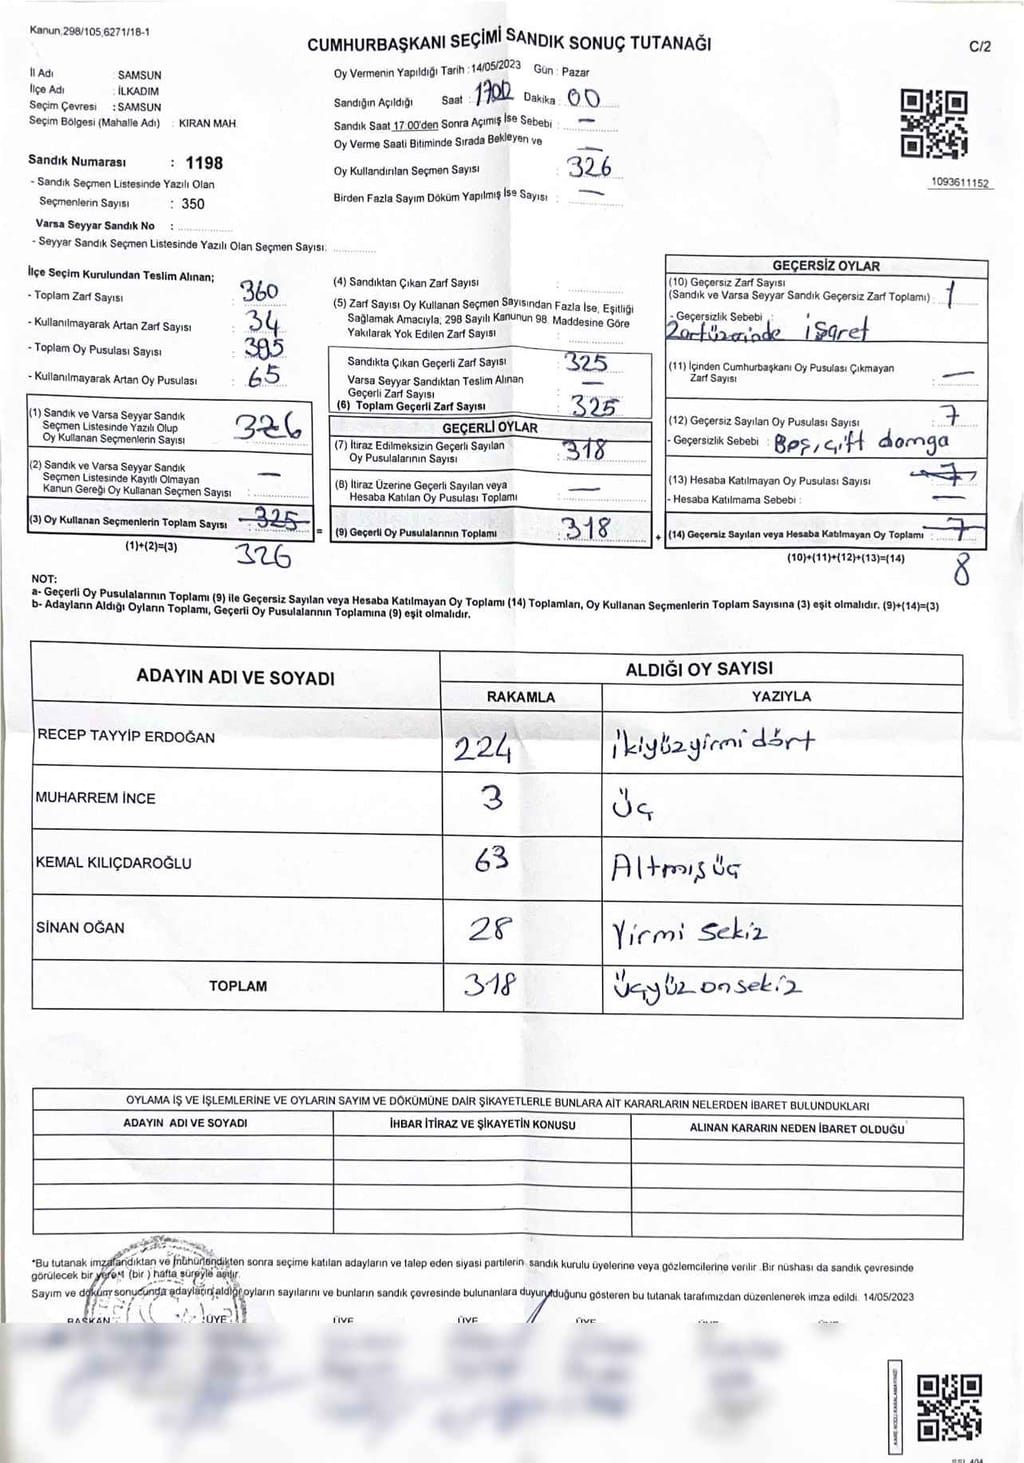 Kanun,298/105,6271/18-1
CUMHURBAŞKANI SEÇİMİ SANDIK SONUÇ TUTANAĞI
C/2
İl Adı : SAMSUN
İlçe Adı : İLKADIM
Seçim Çevresi : SAMSUN
Seçim Bölgesi (Mahalle Adı) : KIRAN MAH
Sandık Numarası : 1198
- Sandık Seçmen Listesinde Yazılı Olan
Seçmenlerin Sayısı : 350
Varsa Seyyar Sandık No :
- Seyyar Sandık Seçmen Listesinde Yazılı Olan Seçmen Sayısı:
Oy Vermenin Yapıldığı Tarih : 14/05/2023 Gün : Pazar
Sandığın Açıldığı Saat : 1700 Dakika : 00
Sandık Saat 17:00'den Sonra Açımış İse Sebebi : —
Oy Verme Saati Bitiminde Sırada Bekleyen ve
Oy Kullandırılan Seçmen Sayısı : 326
Birden Fazla Sayım Döküm Yapılmış İse Sayısı : —
1093611152
İlçe Seçim Kurulundan Teslim Alınan;
- Toplam Zarf Sayısı : 360
- Kullanılmayarak Artan Zarf Sayısı : 34
- Toplam Oy Pusulası Sayısı :
- Kullanılmayarak Artan Oy Pusulası : 65
(1) Sandık ve Varsa Seyyar Sandık
Seçmen Listesinde Yazılı Olup
Oy Kullanan Seçmenlerin Sayısı 326
(2) Sandık ve Varsa Seyyar Sandık
Seçmen Listesinde Kayıtlı Olmayan
Kanun Gereği Oy Kullanan Seçmen Sayısı : —
(3) Oy Kullanan Seçmenlerin Toplam Sayısı : 325
(1)+(2)=(3) 326
(4) Sandıktan Çıkan Zarf Sayısı :
(5) Zarf Sayısı Oy Kullanan Seçmen Sayısından Fazla İse, Eşitliği
Sağlamak Amacıyla, 298 Sayılı Kanunun 98. Maddesine Göre
Yakılarak Yok Edilen Zarf Sayısı :
Sandıkta Çıkan Geçerli Zarf Sayısı : 325
Varsa Seyyar Sandıktan Teslim Alınan
Geçerli Zarf Sayısı : —
(6) Toplam Geçerli Zarf Sayısı : 325
GEÇERLİ OYLAR
(7) İtiraz Edilmeksizin Geçerli Sayılan
Oy Pusulalarının Sayısı : 318
(8) İtiraz Üzerine Geçerli Sayılan veya
Hesaba Katılan Oy Pusulası Toplamı : —
= (9) Geçerli Oy Pusulalarının Toplamı : 318
GEÇERSİZ OYLAR
(10) Geçersiz Zarf Sayısı
(Sandık ve Varsa Seyyar Sandık Geçersiz Zarf Toplamı) : 1
- Geçersizlik Sebebi :
Zarf üzerinde işaret
(11) İçinden Cumhurbaşkanı Oy Pusulası Çıkmayan
Zarf Sayısı : —
(12) Geçersiz Sayılan Oy Pusulası Sayısı : 7
- Geçersizlik Sebebi : Boş, çift damga
(13) Hesaba Katılmayan Oy Pusulası Sayısı : 7
- Hesaba Katılmama Sebebi : —
+ (14) Geçersiz Sayılan veya Hesaba Katılmayan Oy Toplamı : 7
(10)+(11)+(12)+(13)=(14) 8
NOT:
a- Geçerli Oy Pusulalarının Toplamı (9) ile Geçersiz Sayılan veya Hesaba Katılmayan Oy Toplamı (14) Toplamları, Oy Kullanan Seçmenlerin Toplam Sayısına (3) eşit olmalıdır. (9)+(14)=(3)
b- Adayların Aldığı Oyların Toplamı, Geçerli Oy Pusulalarının Toplamına (9) eşit olmalıdır.
ADAYIN ADI VE SOYADI
ALDIĞI OY SAYISI
RAKAMLA YAZIYLA
RECEP TAYYİP ERDOĞAN 224 ikiyüzyirmidört
MUHARREM İNCE 3 üç
KEMAL KILIÇDAROĞLU 63 Altmışüç
SİNAN OĞAN 28 Yirmi sekiz
TOPLAM 318 üçyüz onsekiz
OYLAMA İŞ VE İŞLEMLERİNE VE OYLARIN SAYIM VE DÖKÜMÜNE DAİR ŞİKAYETLERLE BUNLARA AİT KARARLARIN NELERDEN İBARET BULUNDUKLARI
ADAYIN ADI VE SOYADI İHBAR İTİRAZ VE ŞİKAYETİN KONUSU ALINAN KARARIN NEDEN İBARET OLDUĞU
*Bu tutanak imzalandıktan ve mühürlendikten sonra seçime katılan adayların ve talep eden siyasi partilerin sandık kurulu üyelerine veya gözlemcilerine verilir .Bir nüshası da sandık çevresinde
görülecek bir yere 1 (bir ) hafta süreyle asılır.
Sayım ve döküm sonucunda adayların aldığı oyların sayılarını ve bunların sandık çevresinde bulunanlara duyurulduğunu gösteren bu tutanak tarafımızdan düzenlenerek imza edildi. 14/05/2023
BAŞKAN ÜYE ÜYE ÜYE ÜYE